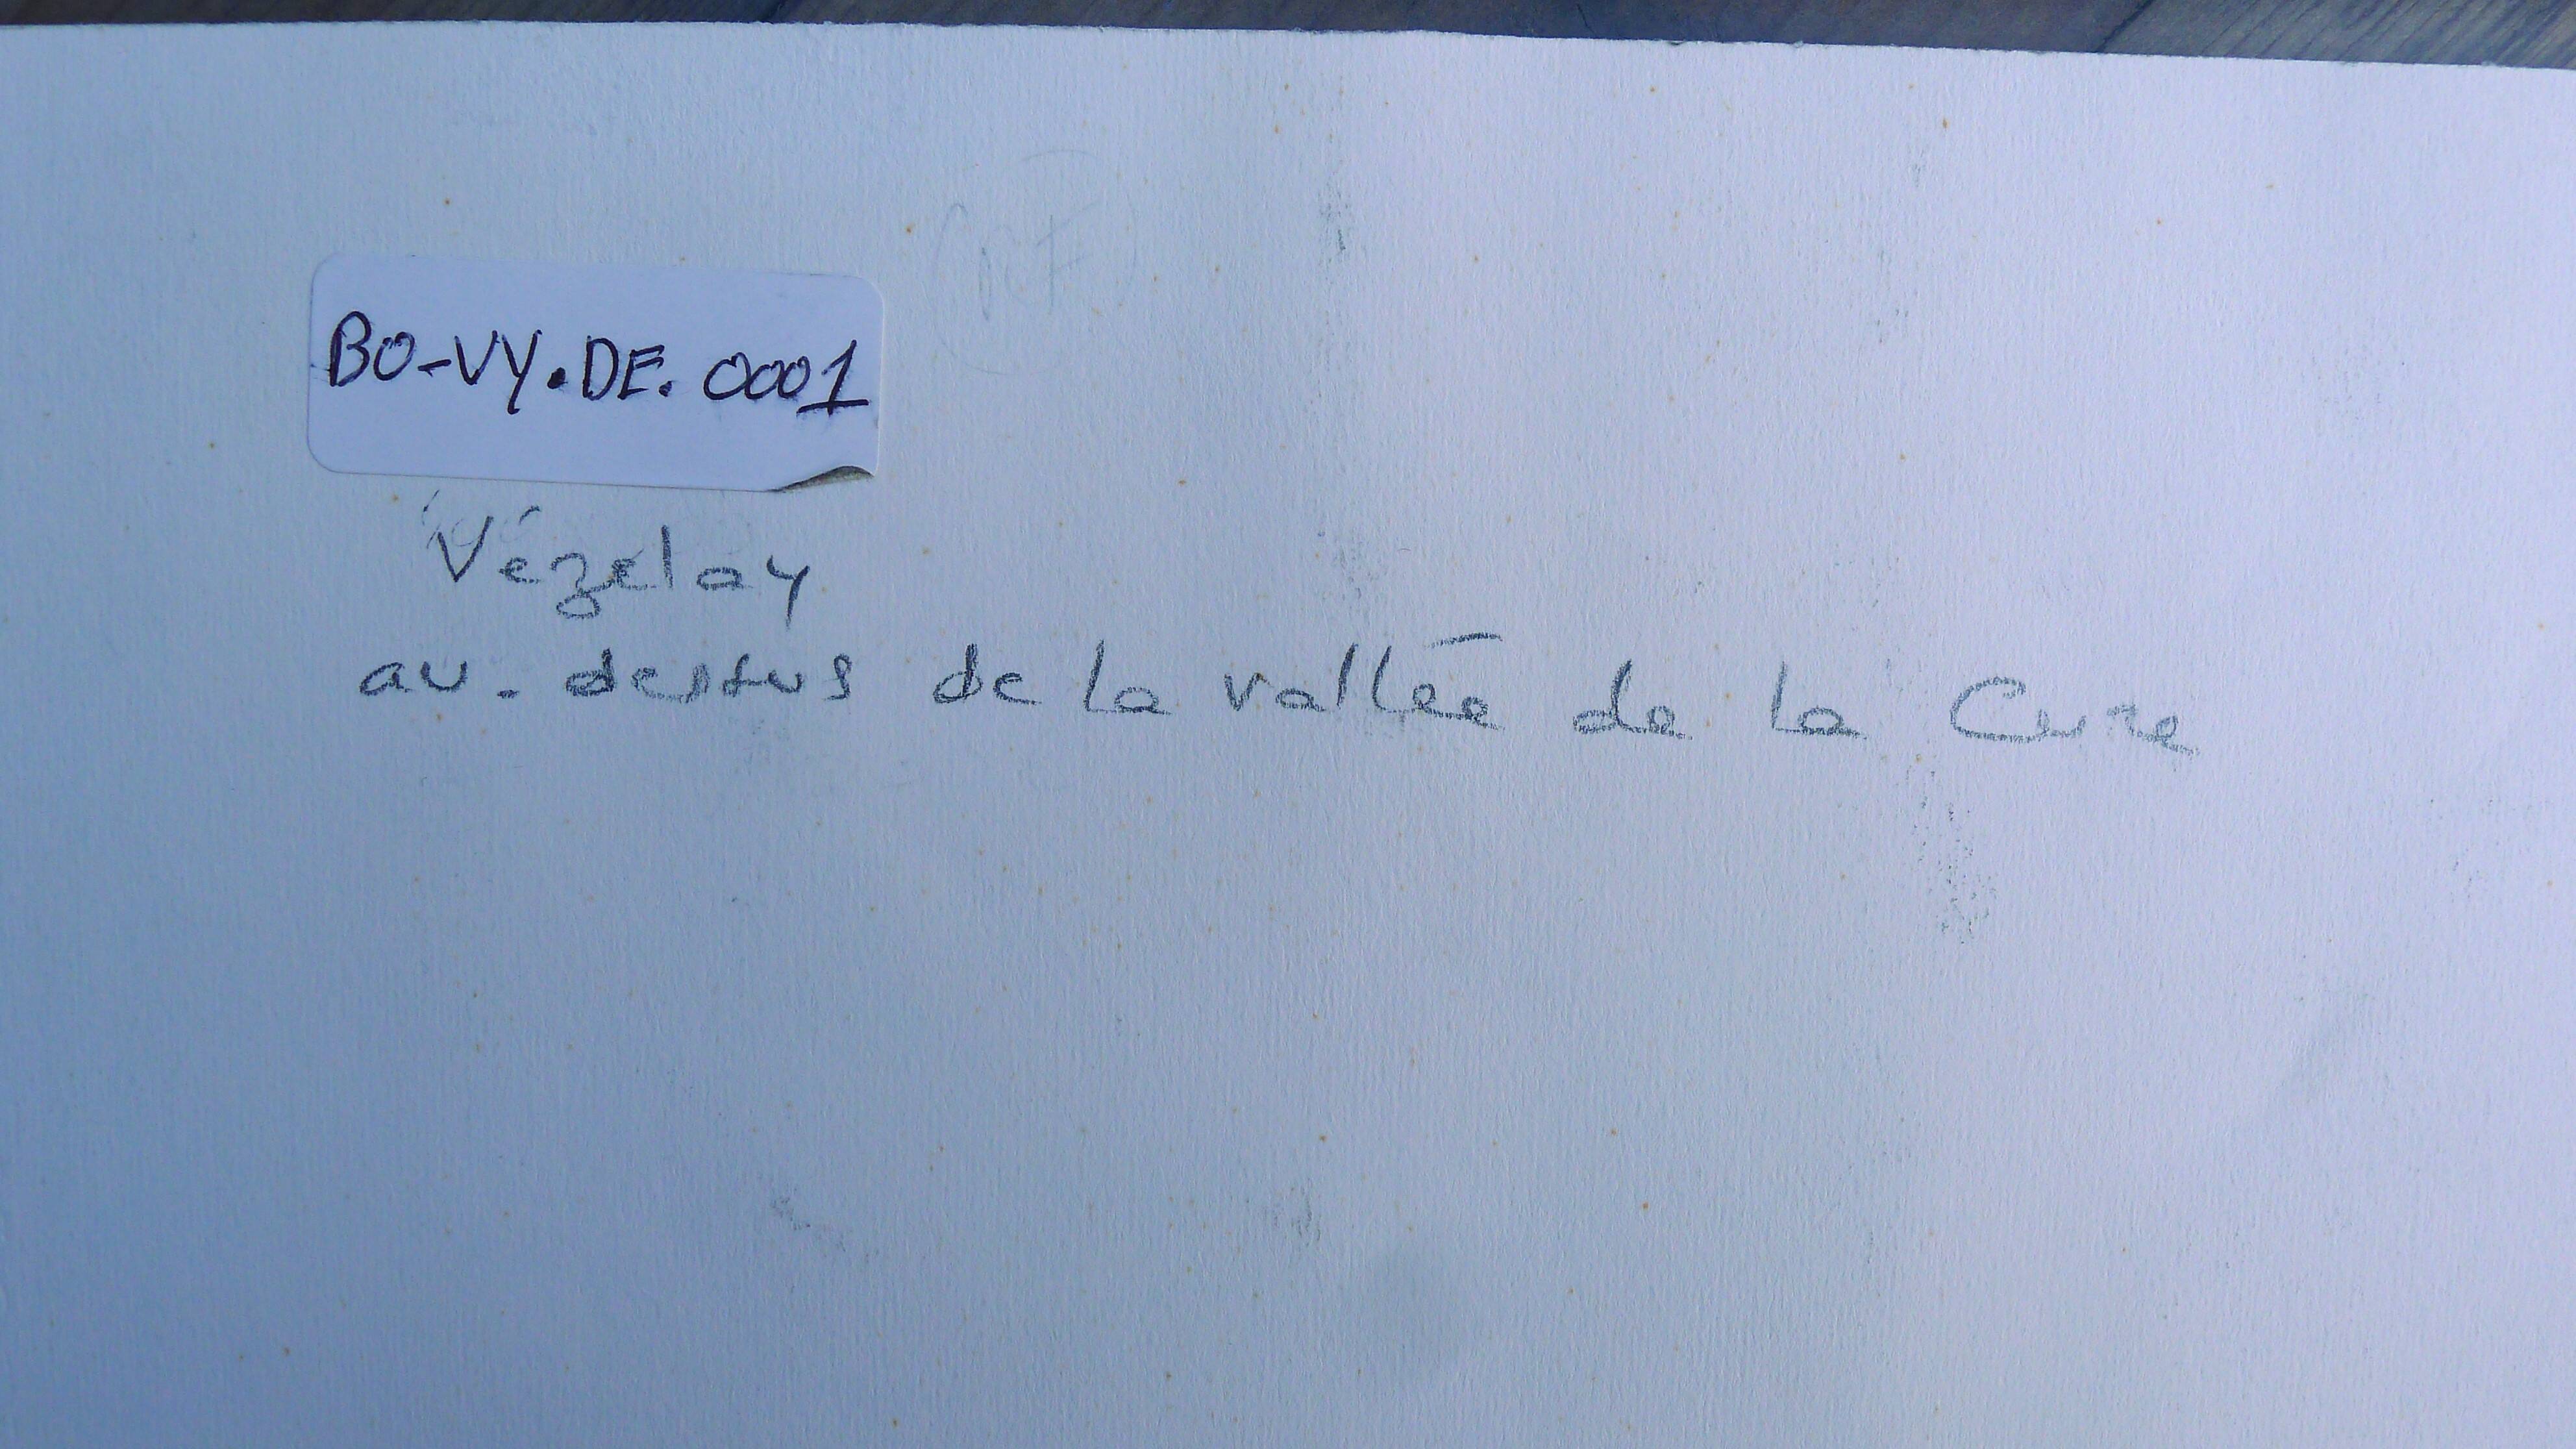 BO-VY.DE.0001
Vézelay
au-dessus de la vallée de la Cure